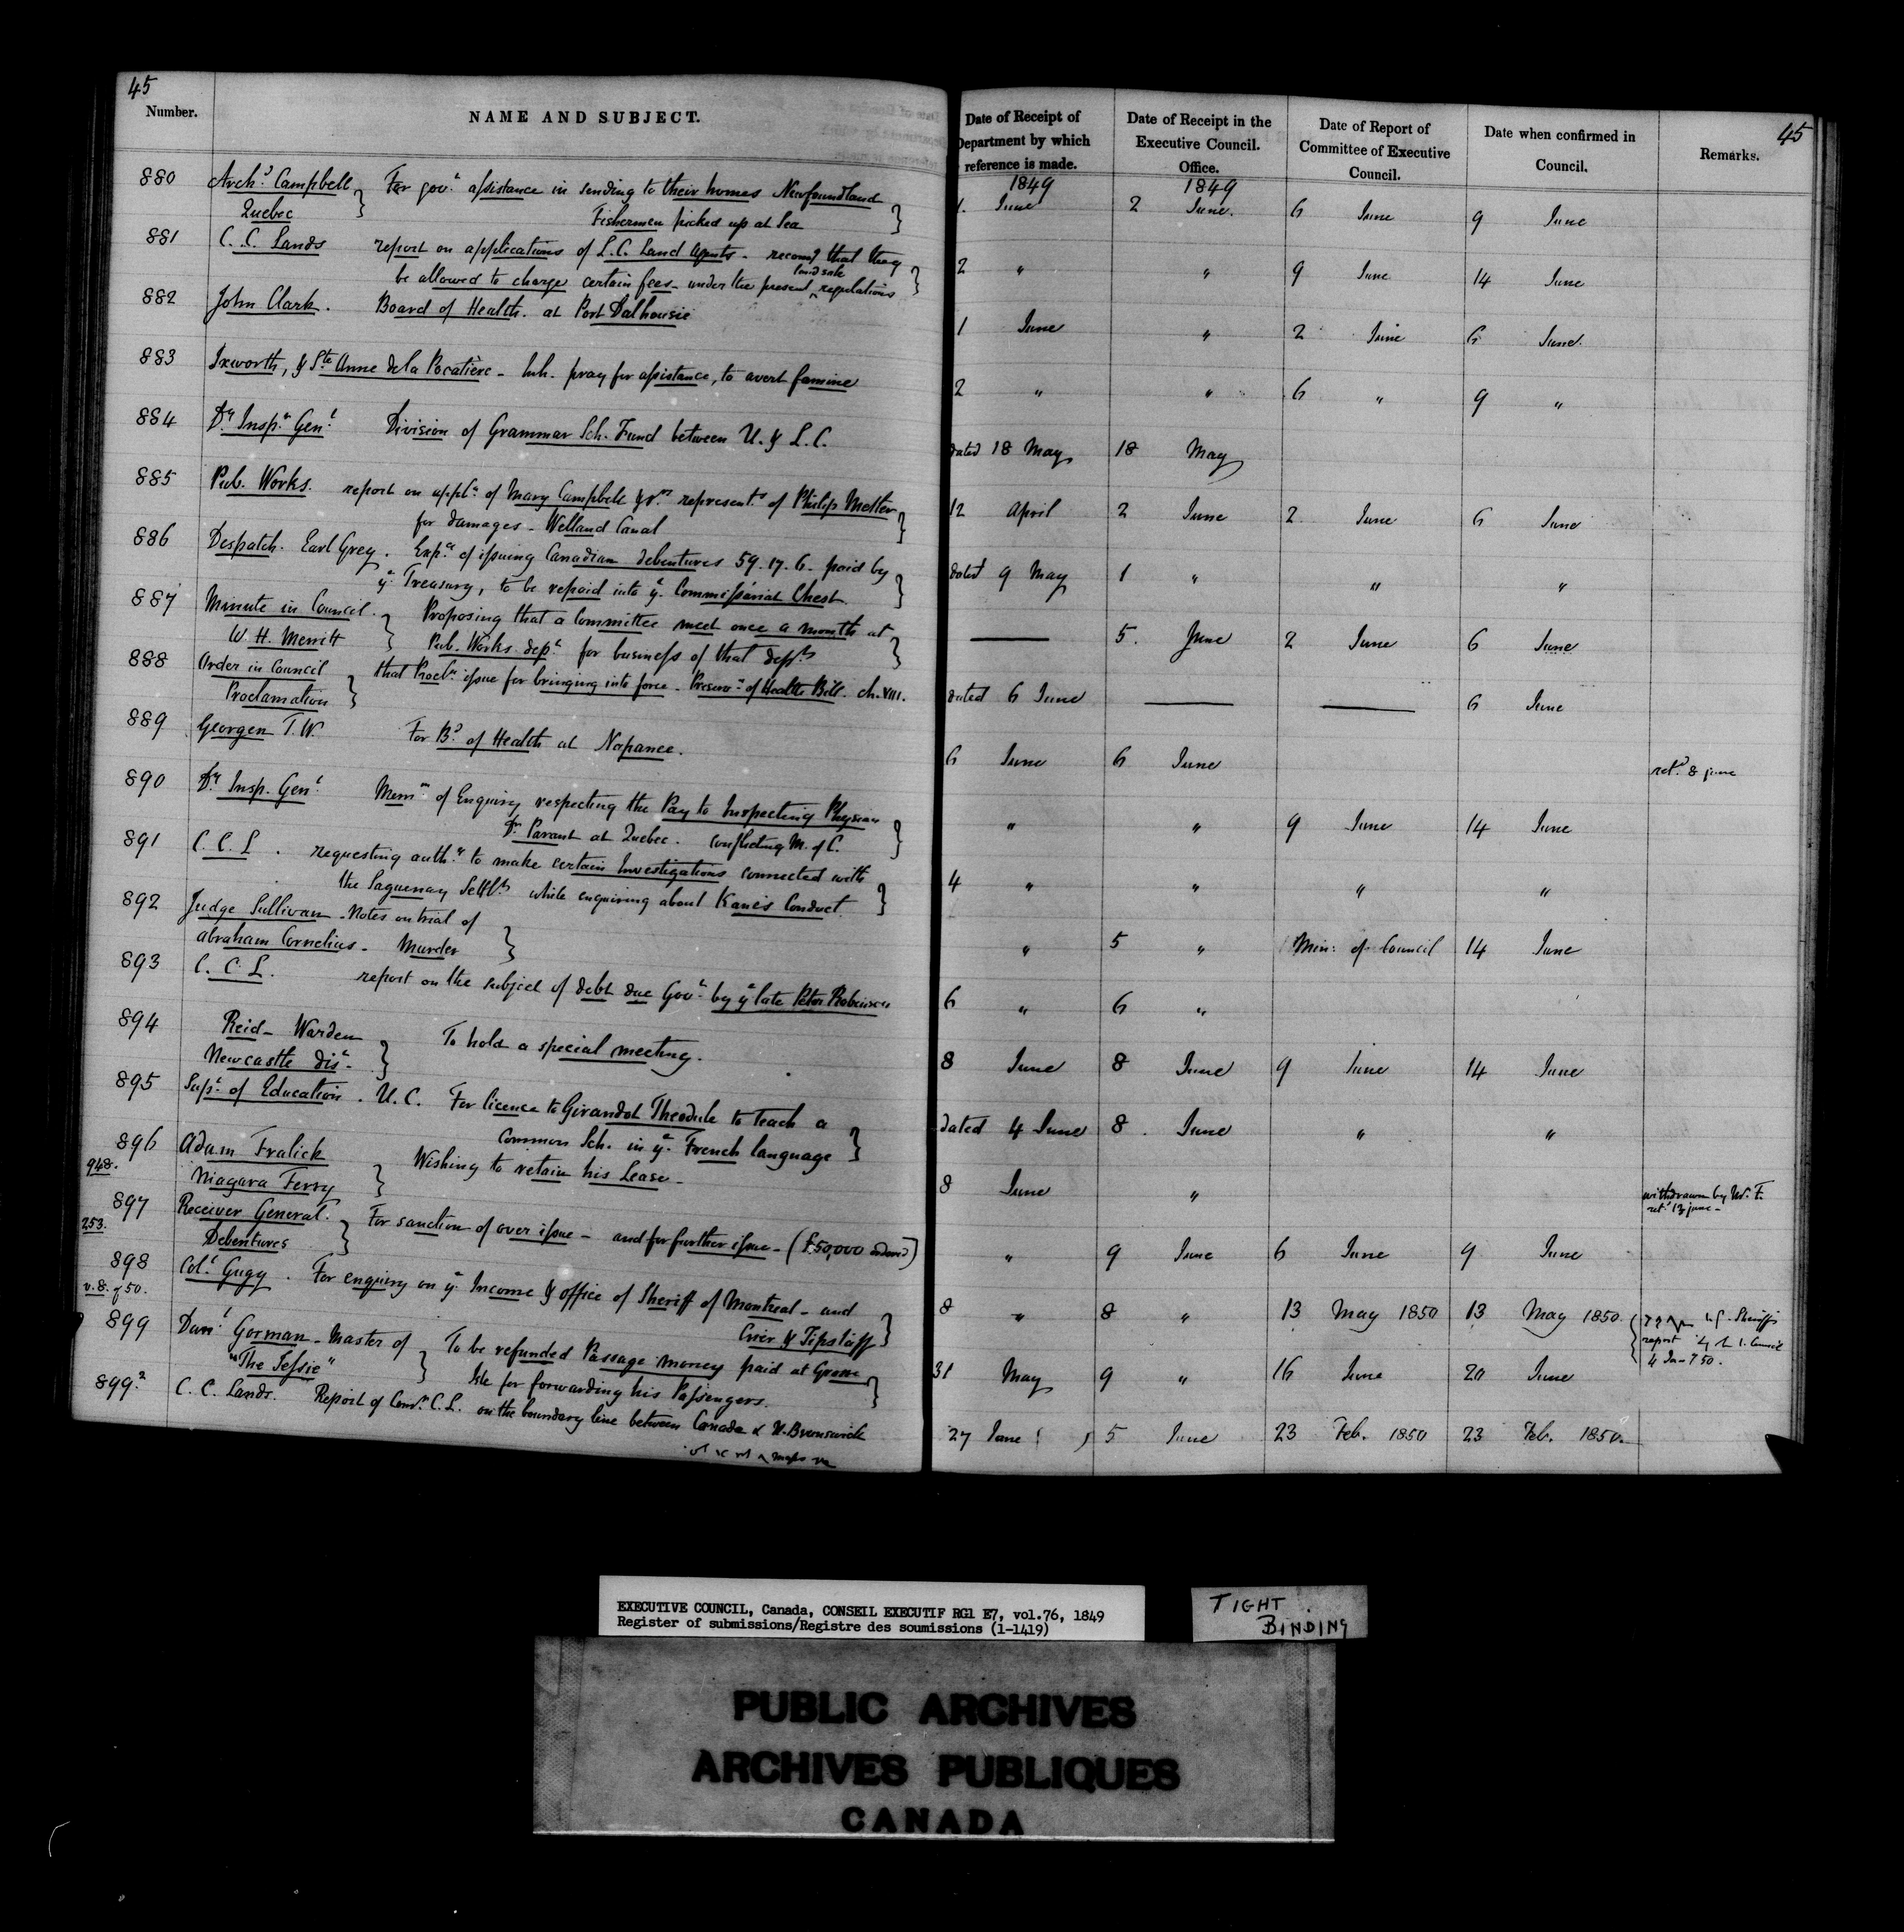 45
Number.
NAME AND SUBJECT.
Date of Receipt of
Department by which
reference is made.
Date of Receipt in the
Executive Council.
Office.
Date of Report of
Committee of Executive
Council.
Date when confirmed in
Council.
Remarks.
45
1849
1849
880 Archd. Campbell } For govt. assistance in sending to their homes Newfoundland }
Quebec Fishermen picked up at Sea
1. June 2 June. 6 June 9 June
881 C. C. Lands report on applications of L.C. Land Agents - recomd that they }
be allowed to charge certain fees - under the present ^ land sale regulations
2 " " 9 June 14 June
882 John Clark. Board of Health. at Port Dalhousie
1 June " 2 June 6 June.
883 Ixworth, & Ste. Anne de la Pocatière - Inh. pray for assistance, to avert famine
2 " " 6 " 9 "
884 Dy. Inspr. Genl. Division of Grammar Sch. Fund between U. & L.C.
dated 18 May 18 May
885 Pub. Works. report on appln. of Mary Campbell & ors. representg. of Philip Metler }
for damages - Welland Canal
12 April 2 June 2 June 6 June
886 Despatch. Earl Grey. Expce of issuing Canadian debentures 59.17.6. paid by }
ye. Treasury, to be repaid into ye. Commissariat Chest.
dated 9 May 1 " " "
887 Minute in Council. } Proposing that a Committee meet once a month at }
W. H. Merritt Pub. Works. dept. for business of that dept.
— 5. June 2 June 6 June
888 Order in Council } that Procln. issue for bringing into force - Preservn. of Health Bill. ch. VIII.
Proclamation
dated 6 June — — 6 June
889 Georgen T. W. For Bd. of Health at Napanee.
6 June 6 June retd. 8 june
890 Dy. Insp. Genl. Memm of Enquiry respecting the Pay to Inspecting Physician }
Dr. Parant at Quebec. Conflicting M. of C.
" " 9 June 14 June
891 C. C. L. requesting authy. to make certain Investigations connected with }
the Saguenay Settlts while enquiring about Kane's Conduct.
4 " " " "
892 Judge Sullivan - Notes on trial of }
Abraham Cornelius - Murder
" 5 " Min: of Council 14 June
893 C. C. L. report on the subject of debt due Govt. by ye late Peter Robinson
6 " 6 "
894 Reid - Warden } To hold a special meeting.
Newcastle Dist.
8 June 8 June 9 June 14 June
895 Supt. of Education. U.C. For licence to Girandot Theodule to teach a }
Common Sch. in ye. French language
dated 4 June 8. June " "
896 Adam Fralick } Wishing to retain his Lease -
948. Niagara Ferry
8 June " withdrawn by Mr. F.
retd. 13 june -
897 Receiver General. } For sanction of over issue - and for further issue - (£50,000 ordered)
253. Debentures
" 9 June 6 June 9 June
898 Coll. Gugy. For enquiry on ye. Income & office of Sheriff of Montreal - and }
v. 8. of 50. Crier & Tipstaff
8 " 8 " 13 May 1850 13 May 1850. Sheriffs
report
4 50.
899 Danl. Gorman - Master of } To be refunded Passage money paid at Grosse }
"The Jessie" Isle for forwarding his Passengers.
31 May 9 " 16 June 20 June
899.2 C. C. Lands. Report of Comr. C.L. on the boundary line between Canada & N. Brunswick
27 June 5 June 23 Feb. 1850 23 Feb. 1850.
EXECUTIVE COUNCIL, Canada, CONSEIL EXECUTIF RG1 E7, vol.76, 1849
Register of submissions/Registre des soumissions (1-1419)
TIGHT
BINDING
PUBLIC ARCHIVES
ARCHIVES PUBLIQUES
CANADA